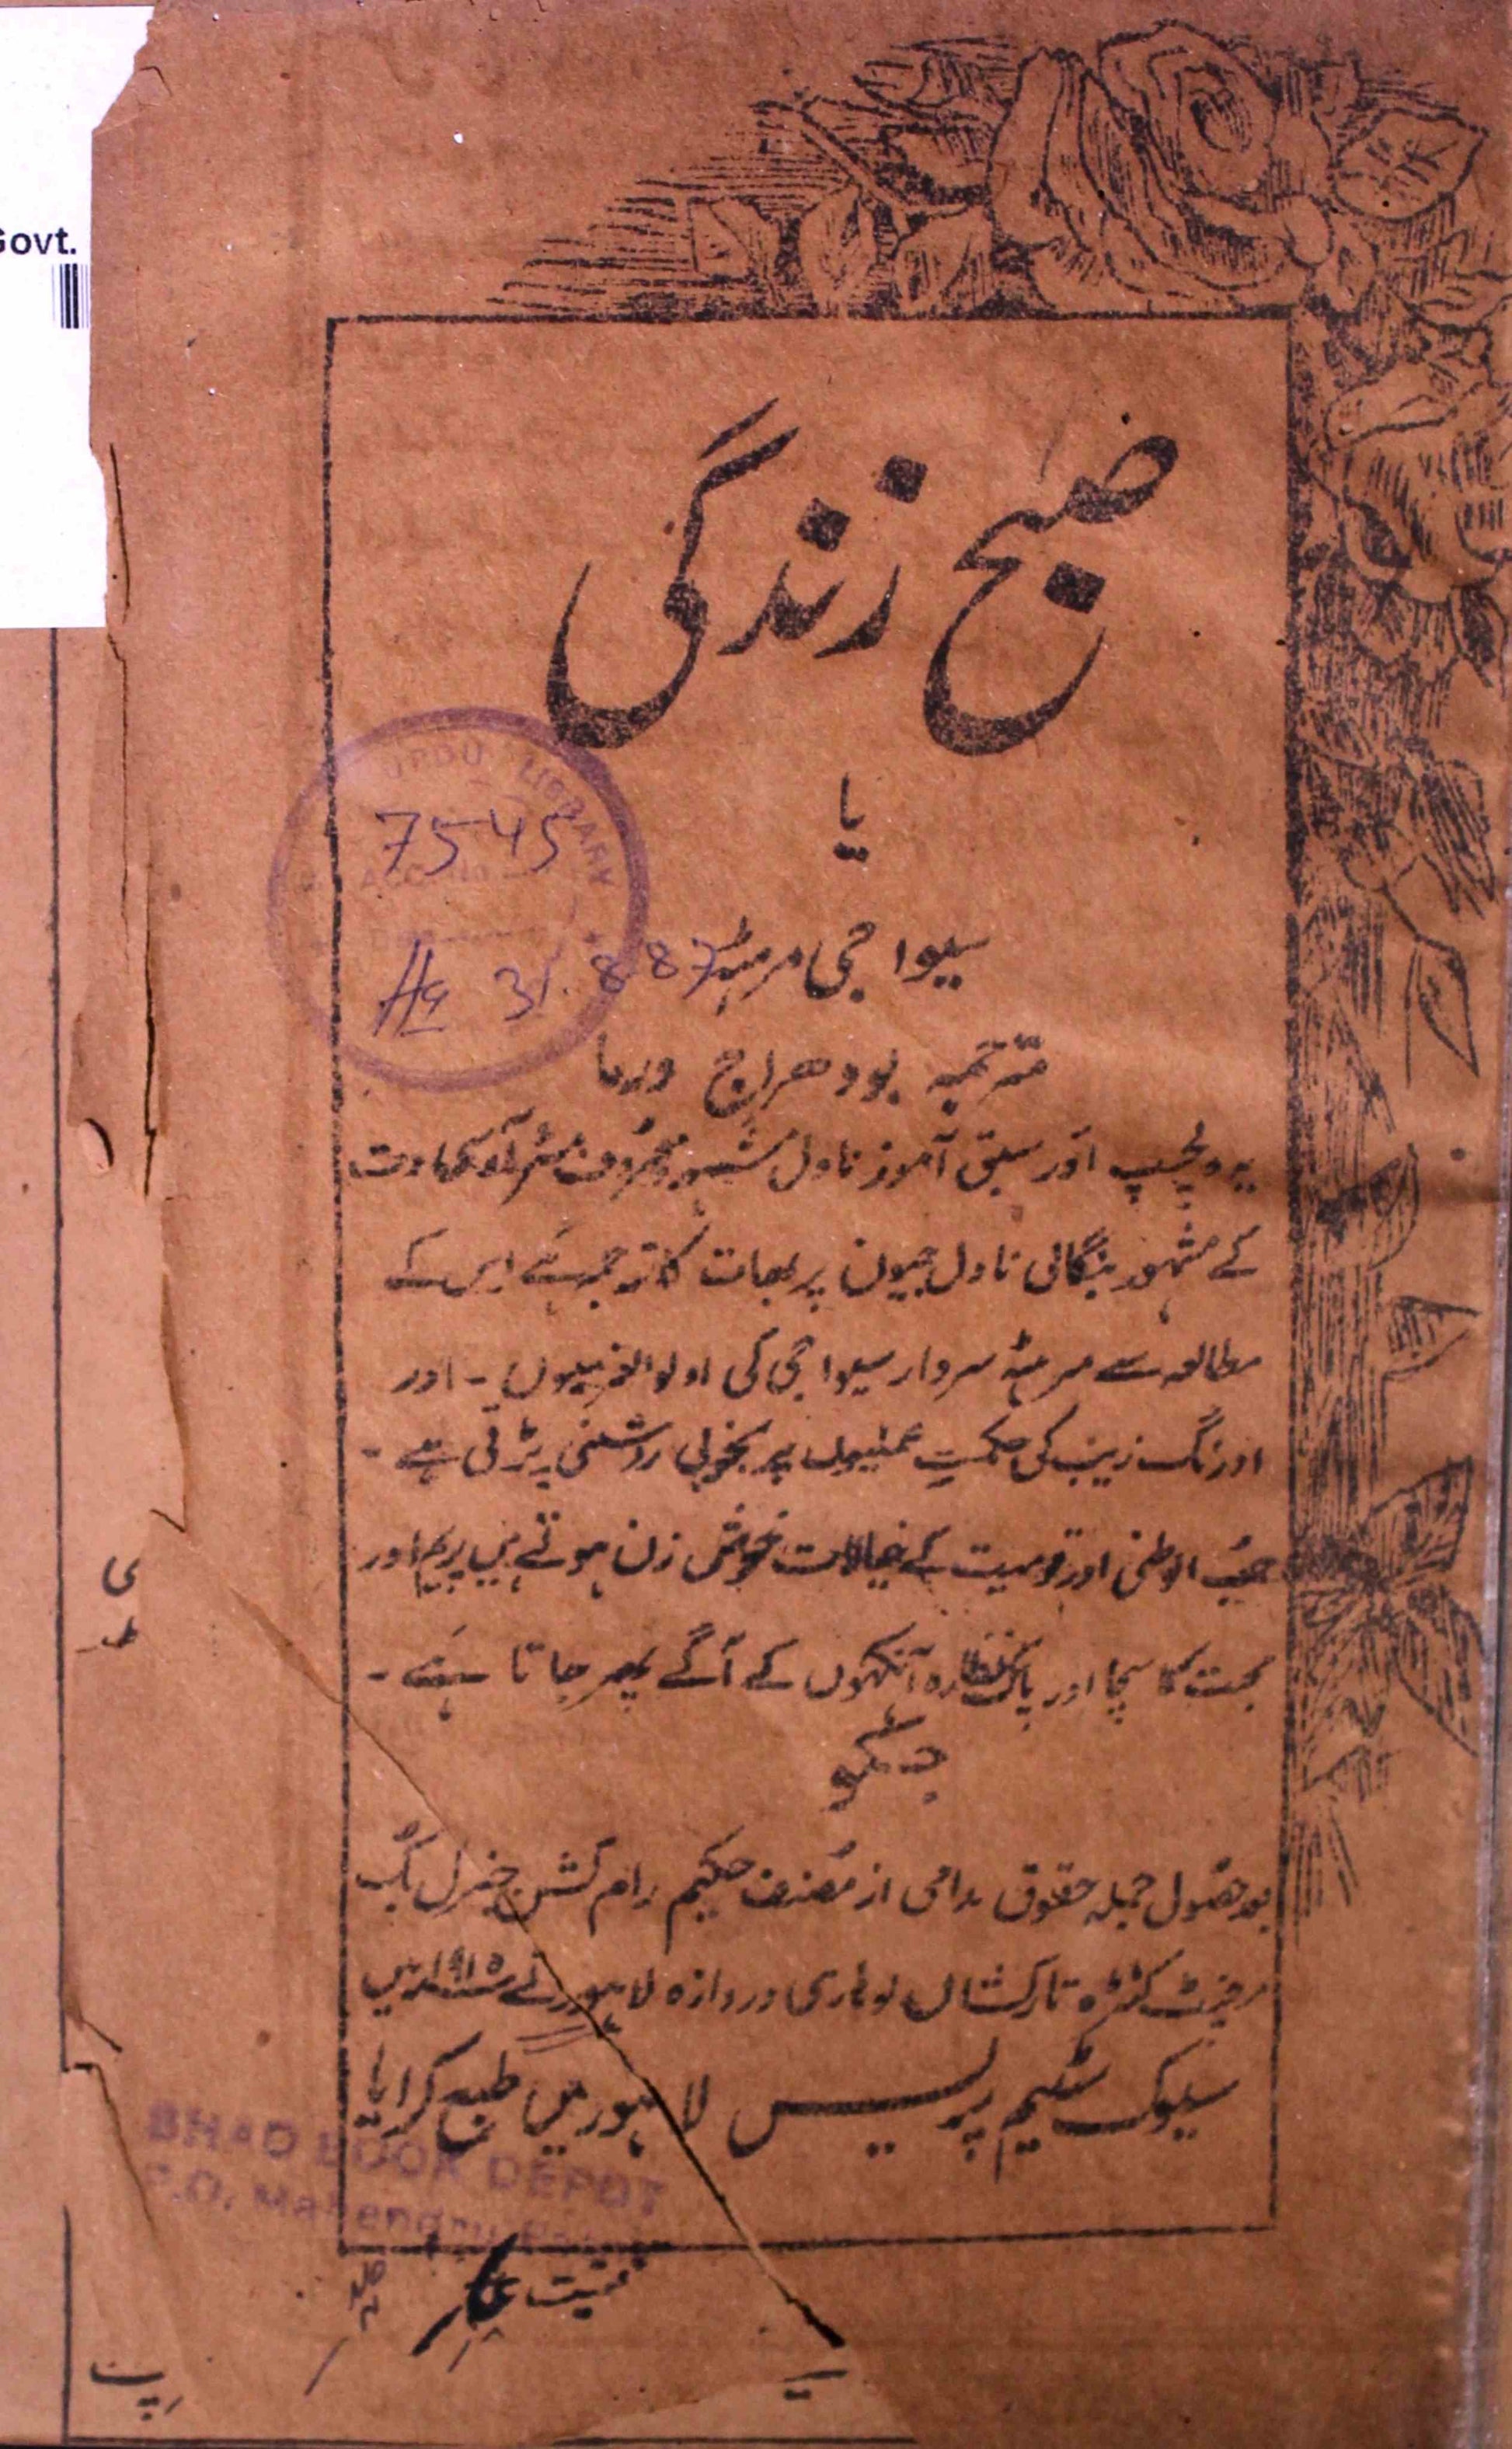 Govt.
صبح زندگی
یا
سیوا جی مرہٹہ
مترجمہ بودھراج ورما
یہ دلچسپ اور سبق آموز ناول مشہور و معروف مسٹر آر سی دت
کے مشہور بنگالی ناول جیون پربھات کا ترجمہ ہے اس کے
مطالعہ سے مرہٹہ سردار سیوا جی کی اولوالعزمیوں - اور
اورنگ زیب کی حکمت عملیوں پر بخوبی روشنی پڑتی ہے -
حب الوطنی اور قومیت کے خیالات موجزن ہوتے ہیں پریم اور
محبت کا سچا اور پاک نظارہ آنکھوں کے آگے پھر جاتا ہے -
جسکو
بعد حصول جملہ حقوق دوامی از مصنف حکیم رام کشن جنرل بک
مرچنٹ کٹڑہ تارکشاں لوہاری دروازہ لاہور نے میں
سیوک سٹیم پریس لاہور میں طبع کرایا
قیمت
URDU LIBRARY
7545
31.8.87
BHAD BOOK DEPOT
P.O. Mahendru